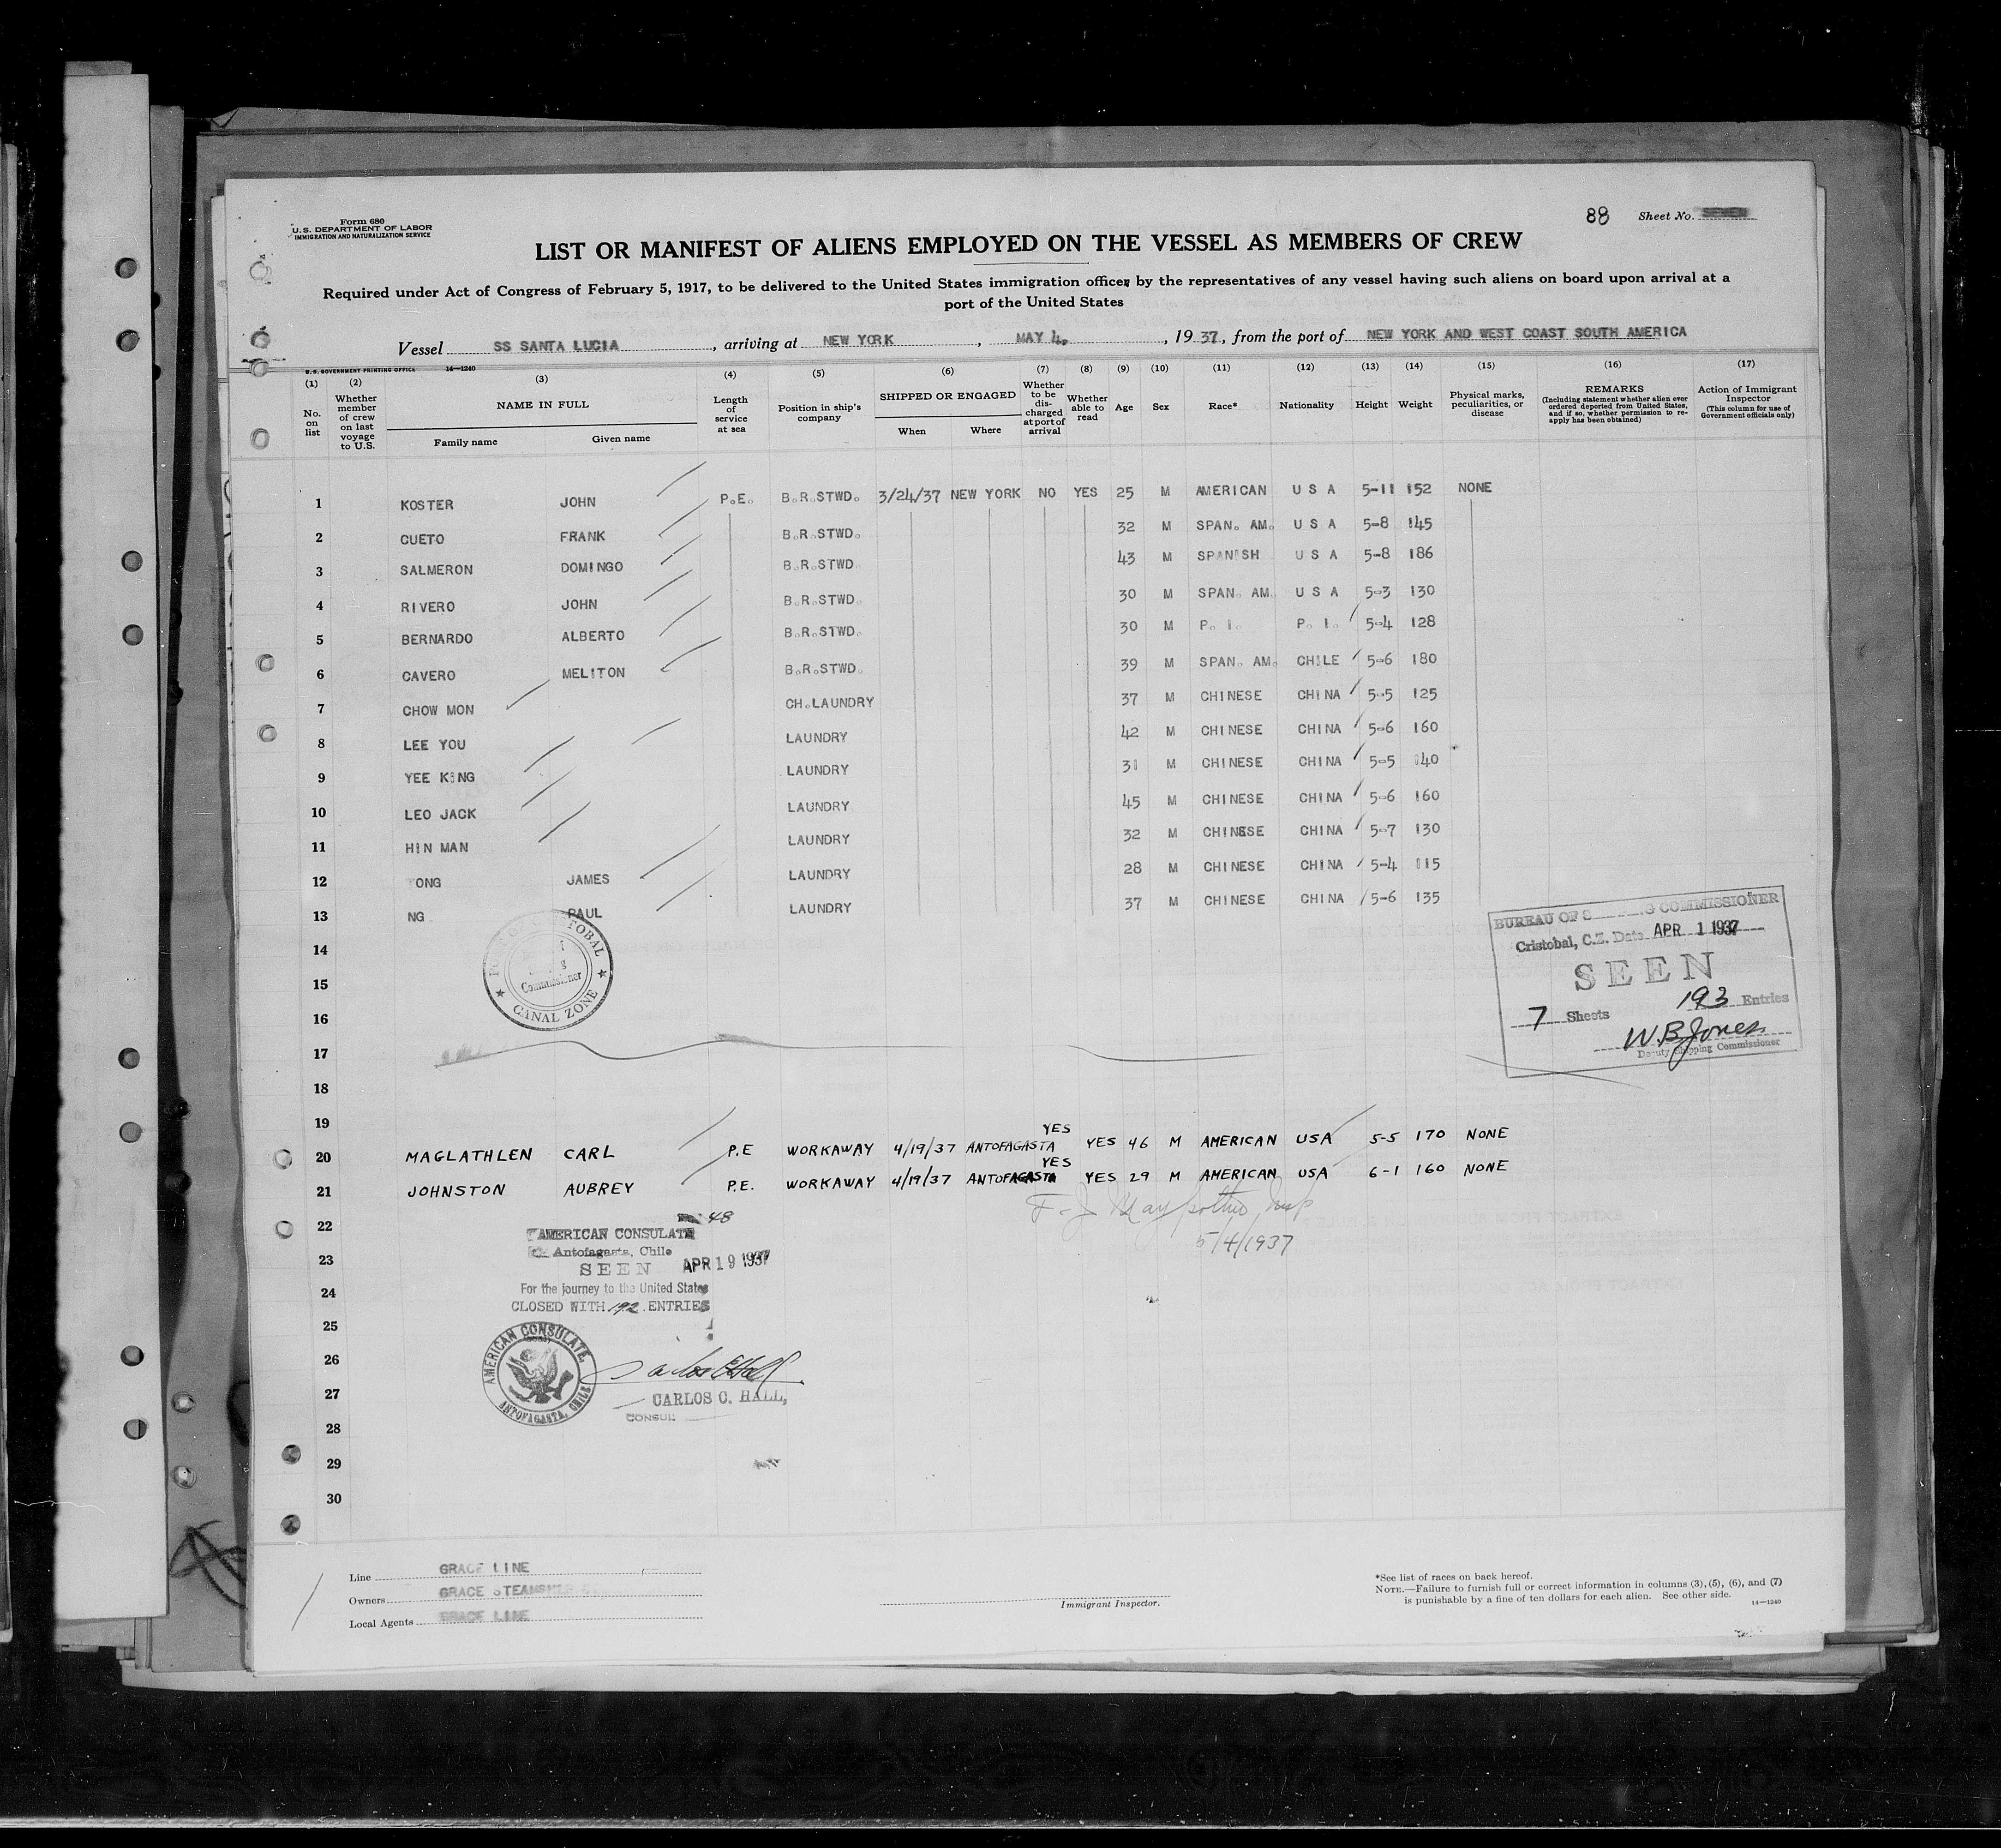 Form 680
U.S. DEPARTMENT OF LABOR
IMMIGRATION AND NATURALIZATION SERVICE
88 Sheet No. SEVEN
LIST OR MANIFEST OF ALIENS EMPLOYED ON THE VESSEL AS MEMBERS OF CREW
Required under Act of Congress of February 5, 1917, to be delivered to the United States immigration officer by the representatives of any vessel having such aliens on board upon arrival at a
port of the United States
Vessel SS SANTA LUCIA, arriving at NEW YORK, MAY 4, 1937, from the port of NEW YORK AND WEST COAST SOUTH AMERICA
U.S. GOVERNMENT PRINTING OFFICE 14—1240
(1) No. on list
(2) Whether member of crew on last voyage to U.S.
(3) NAME IN FULL Family name Given name
(4) Length of service at sea
(5) Position in ship's company
(6) SHIPPED OR ENGAGED When Where
(7) Whether to be discharged at port of arrival
(8) Whether able to read
(9) Age
(10) Sex
(11) Race*
(12) Nationality
(13) Height
(14) Weight
(15) Physical marks, peculiarities, or disease
(16) REMARKS (Including statement whether alien ever ordered deported from United States, and if so, whether permission to reapply has been obtained)
(17) Action of Immigrant Inspector (This column for use of Government officials only)
1 KOSTER JOHN P.E. B.R.STWD. 3/24/37 NEW YORK NO YES 25 M AMERICAN U S A 5-11 152 NONE
2 CUETO FRANK B.R.STWD. 32 M SPAN. AM. U S A 5-8 145
3 SALMERON DOMINGO B.R.STWD. 43 M SPANISH U S A 5-8 186
4 RIVERO JOHN B.R.STWD. 30 M SPAN. AM. U S A 5-3 130
5 BERNARDO ALBERTO B.R.STWD. 30 M P. I. P. I. 5-4 128
6 CAVERO MELITON B.R.STWD. 39 M SPAN. AM. CHILE 5-6 180
7 CHOW MON CH.LAUNDRY 37 M CHINESE CHINA 5-5 125
8 LEE YOU LAUNDRY 42 M CHINESE CHINA 5-6 160
9 YEE KING LAUNDRY 31 M CHINESE CHINA 5-5 140
10 LEO JACK LAUNDRY 45 M CHINESE CHINA 5-6 160
11 HIN MAN LAUNDRY 32 M CHINESE CHINA 5-7 130
12 ONG JAMES LAUNDRY 28 M CHINESE CHINA 5-4 115
13 NG PAUL LAUNDRY 37 M CHINESE CHINA 5-6 135
14
15
16
17
18
19
Commissioner
CANAL ZONE
BUREAU OF COMMISSIONER
Cristobal, C.Z. Date APR 1 1937
SEEN
7 Sheets 193 Entries
W.B. Jones
Deputy Shipping Commissioner
20 MAGLATHLEN CARL P.E WORKAWAY 4/19/37 ANTOFAGASTA YES YES 46 M AMERICAN USA 5-5 170 NONE
21 JOHNSTON AUBREY P.E. WORKAWAY 4/19/37 ANTOFAGASTA YES YES 29 M AMERICAN USA 6-1 160 NONE
22
23
24
25
26
27
28
29
30
5/4/1937
48
AMERICAN CONSULATE
Antofagasta, Chile
SEEN APR 19 1937
For the journey to the United States
CLOSED WITH 192 ENTRIES
AMERICAN CONSULATE,
ANTOFAGASTA, CHILE
CARLOS C. HALL,
CONSUL
Line GRACE LINE
Owners GRACE STEAMSHIP
Local Agents GRACE LINE
Immigrant Inspector.
*See list of races on back hereof.
NOTE.—Failure to furnish full or correct information in columns (3), (5), (6), and (7)
is punishable by a fine of ten dollars for each alien. See other side.
14—1240